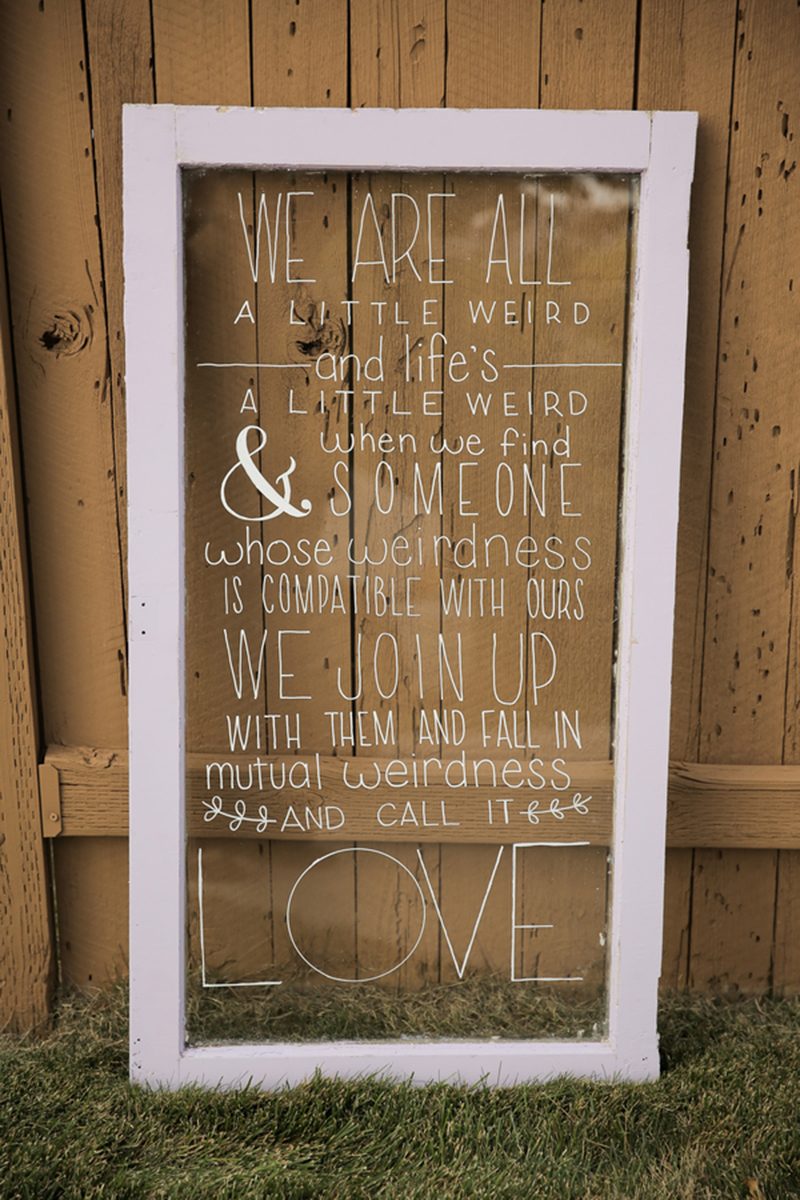 WE ARE ALL
A LITTLE WEIRD
and life's
A LITTLE WEIRD
& when we find
SOMEONE
whose weirdness
IS COMPATIBLE WITH OURS
WE JOIN UP
WITH THEM AND FALL IN
mutual weirdness
AND CALL IT
LOVE